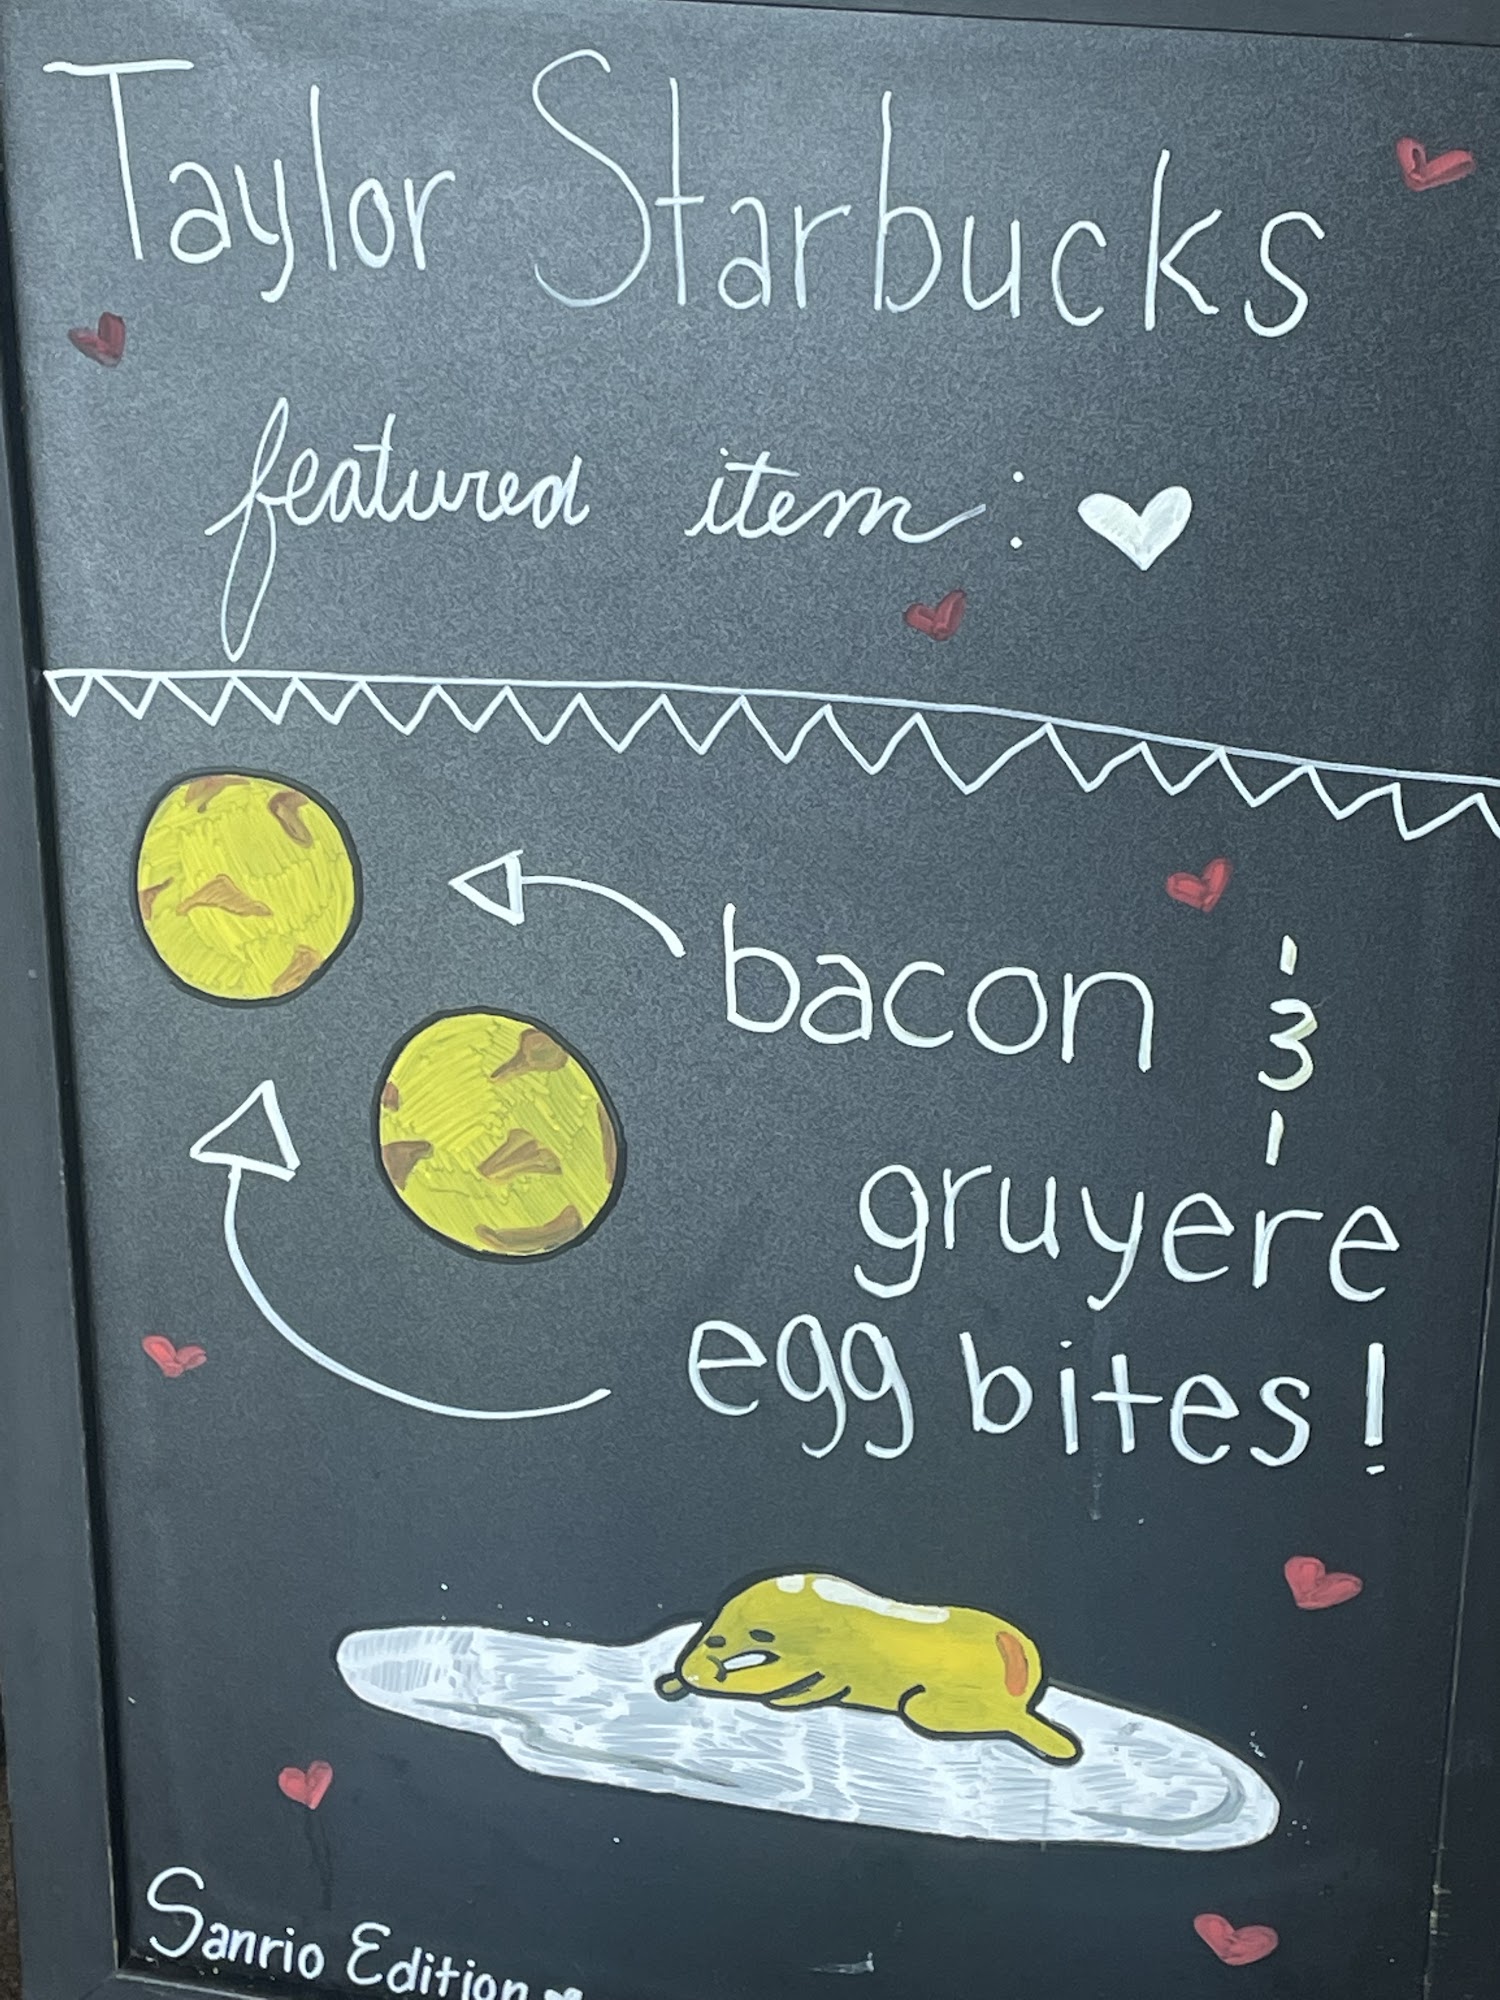 Taylor Starbucks
featured item:
bacon &
gruyere
egg bites!
Sanrio Edition